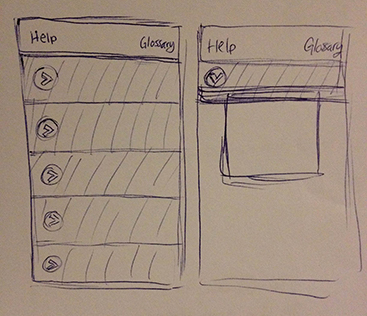 Help Glossary
Help Glossary